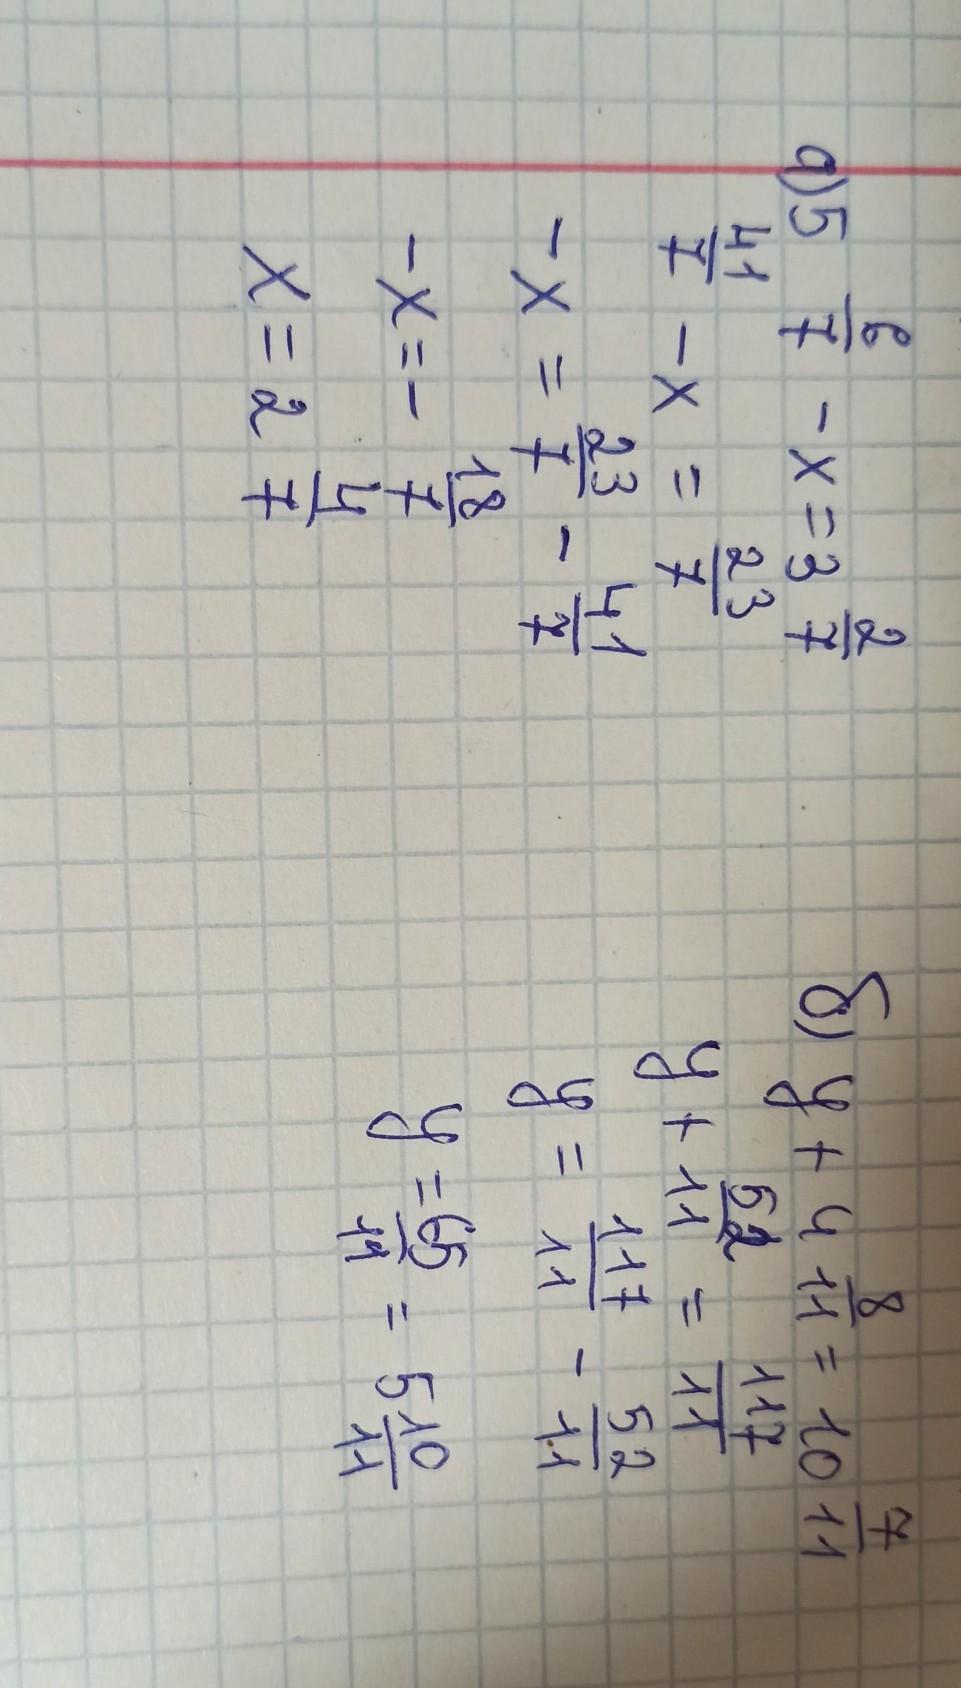 а) 5 6/7 - x = 3 2/7
41/7 - x = 23/7
-x = 23/7 - 41/7
-x = - 18/7
x = 2 4/7
б) y + 4 8/11 = 10 7/11
y + 52/11 = 117/11
y = 117/11 - 52/11
y = 65/11 = 5 10/11